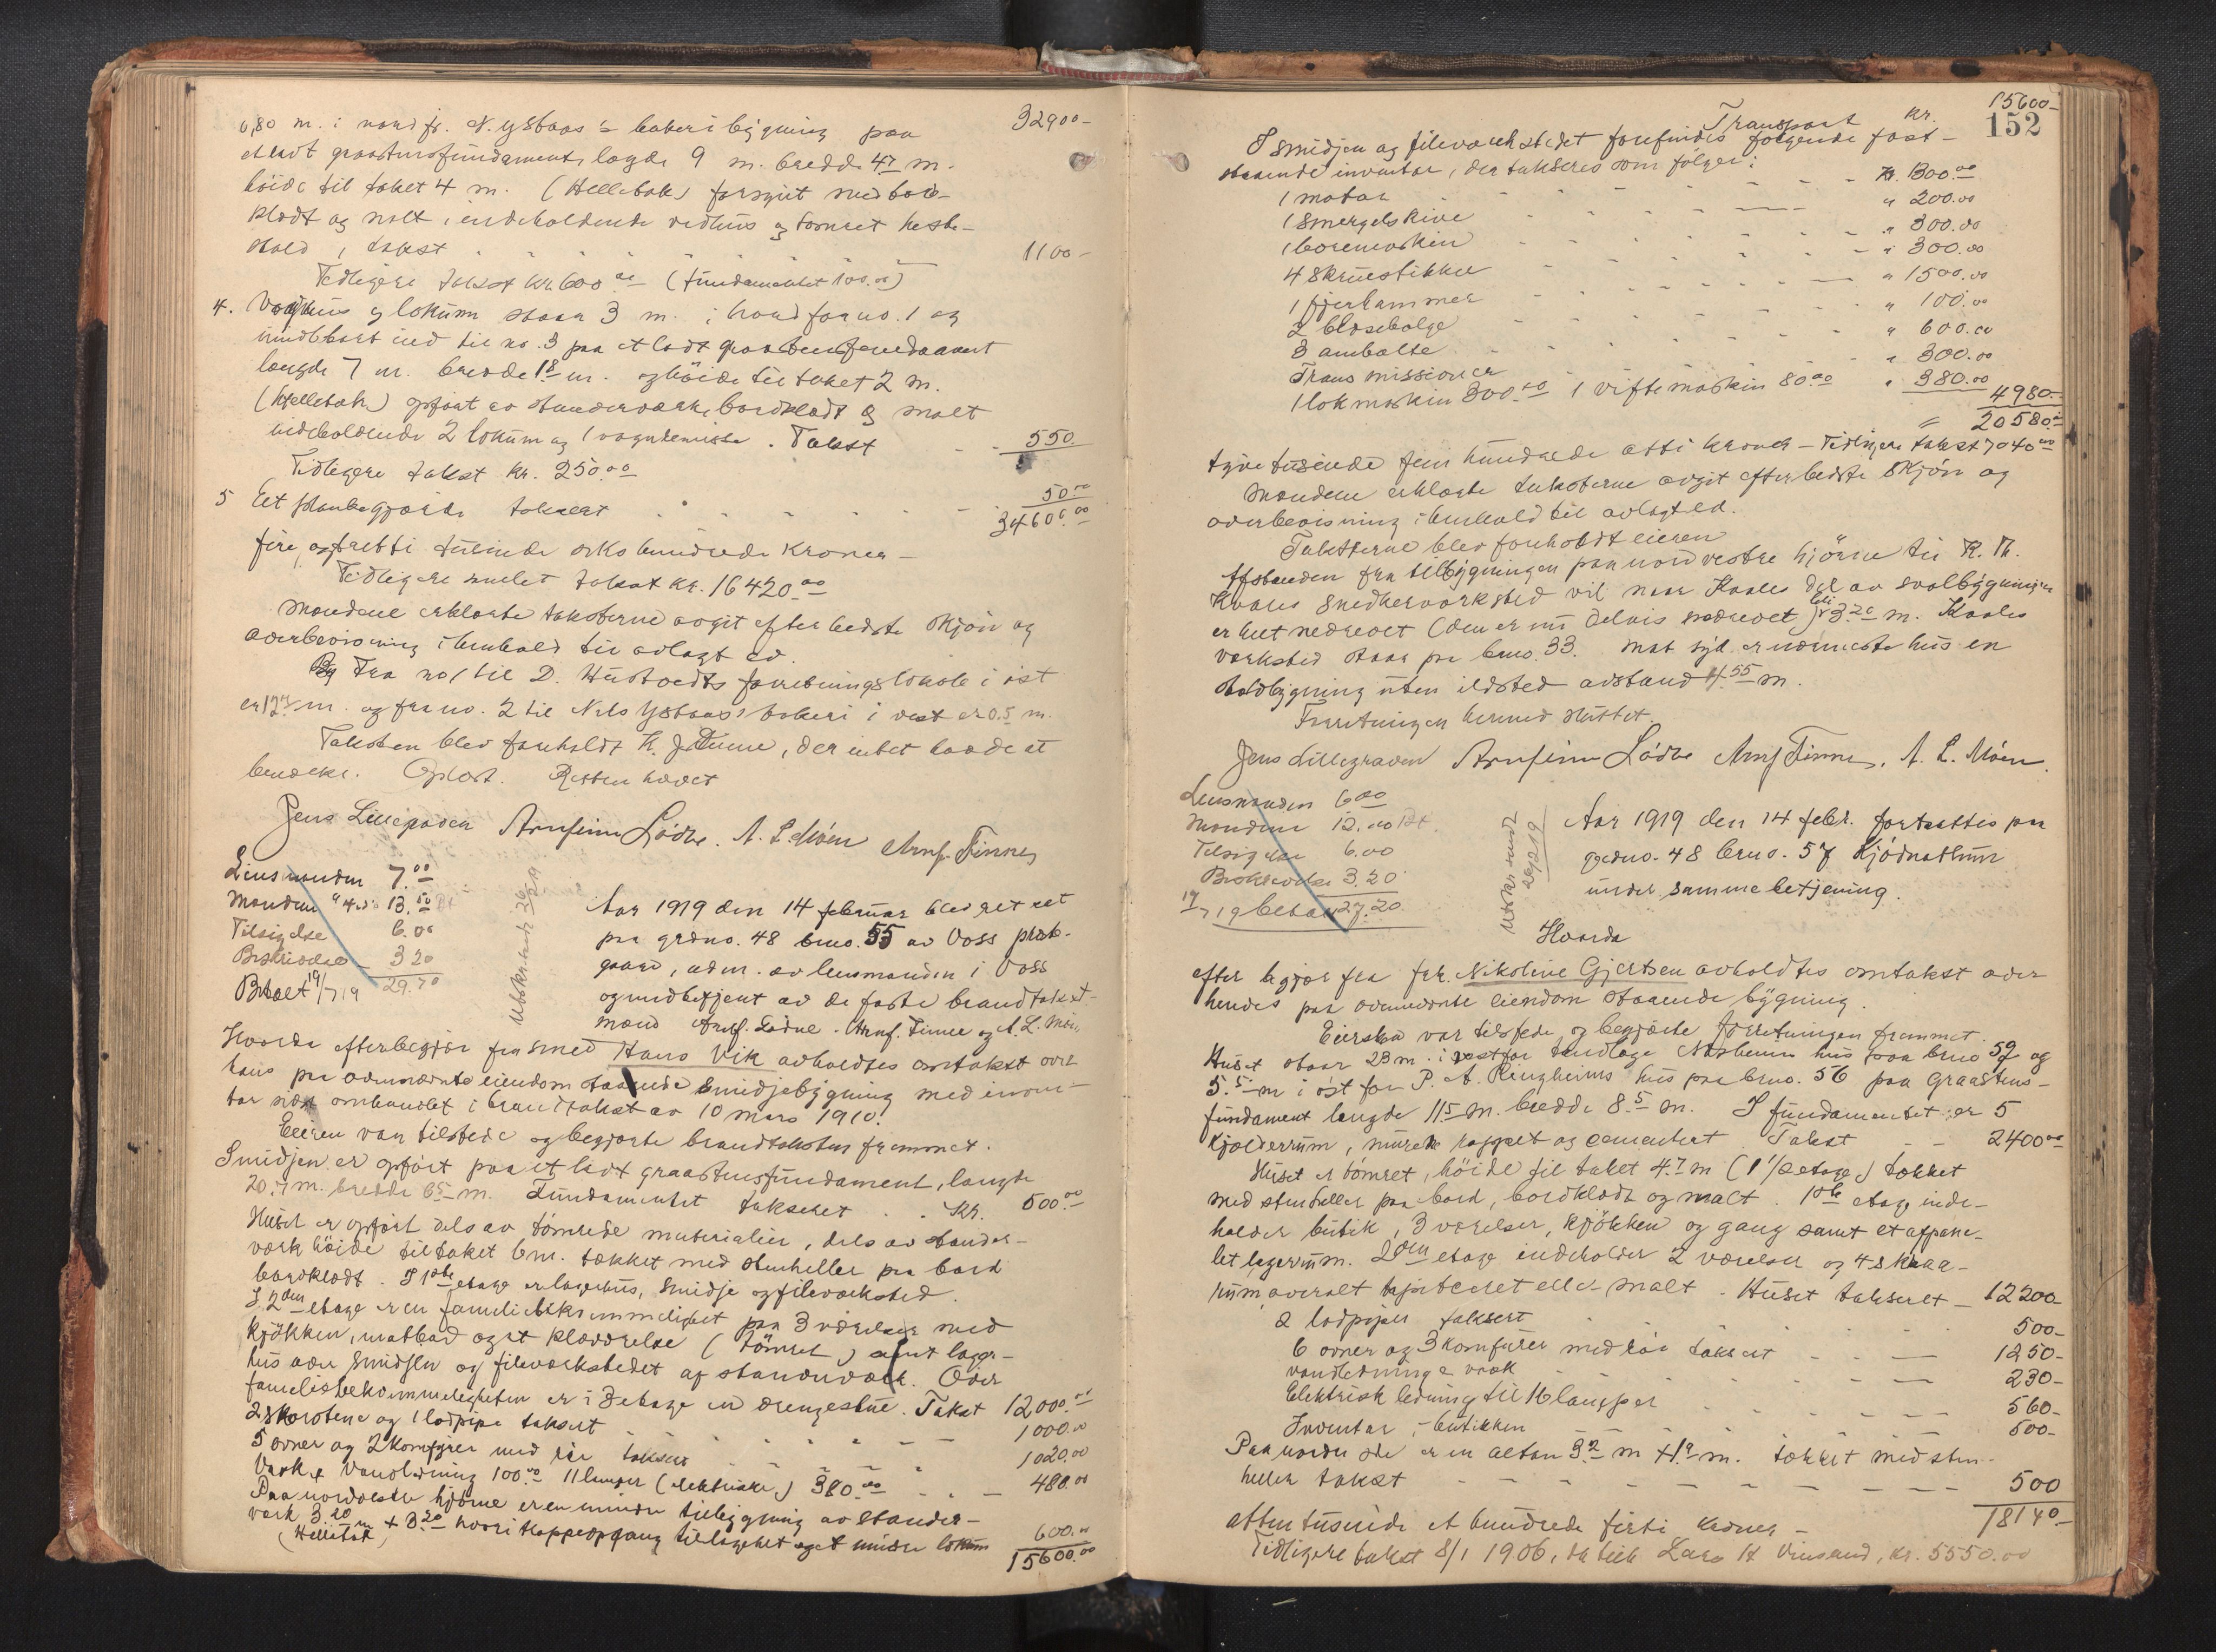 0,80 m. i nord fr. N. Ystaas's bakeribygning paa 32900-
et lavt graastensfundament, længde 9 m. bredde 4.7 m.
höide til taket 4 m. (Helletak) forsynt med bord-
klædt og malt, indeholdende vedhus og tömret heste-
stald, takst 1100-
Tidligere takst kr. 600.00 - (fundamentet 100.00)
4. Vognhus og lokum staar 3 m. i nord for no. 1 og
indbygget ind til no. 3 paa et lavt graastensfundament
længde 7 m. bredde 1.8 m. og höide til taket 2 m.
(Helletak) opfört av standerværk, bordklædt og malt
indeholdende 2 lokum og 1 vognremisse. Takst 550
Tidligere takst kr. 250.00
5 Et plankegjærde taksert 50.00
34600.00
fire og tretti tusinde seks hundrede kroner -
Tidligere samlet takst kr. 16420.00
Mændene erklærte taksterne avgit efter bedste skjön og
overbevisning i henhold til avlagt ed.
Fra no 1 til D. Hustvedts forretningslokale i öst
er 12 m. og fra no. 2 til Nils Ystaas' bakeri i vest er 0.5 m.
Taksten blev foreholdt K. J. Finne, der intet havde at
bemerke. Oplæst. Retten hævet
Jens Lillegraven Arnfinn Lödve. A. L. Möen Arnf. Finne
Lensmanden 7.00
Mændene 13.50
Tilsigelse 6.00
Beskrivelse 3 20
Betalt 19/7 19 29.70
Utskr. sendt
Aar 1919 den 14 februar blev ret sat
paa grdno. 48 brno. 55 av Voss præste-
gaard, adm. av lensmanden i Voss
og medbetjent av de faste brandtakst-
mænd Arnf. Lödve. Arnf. Finne og A. L. Möen
Hvorda efter begjær fra smed Hans Vik avholdtes omtakst over
hans paa ovennævnte eiendom staaende smidjebygning med inven-
tar sidst omhandlet i brandtakst av 10 mars 1910.
Eieren var tilstede og begjærte brandtaksten fremmet.
Smidjen er opfört paa et lavt graastensfundament, længde
20.7 m. bredde 6.5 m. Fundamentet taksert . . Kr. 500.00
Huset er opfört dels av tömrede materialier, dels av stander-
værk höide til taket 6 m. tækket med stenheller paa bord
bordklædt. I 1ste etage er lagerhus, smidje og fileværksted.
I 2den etage er en familiebekvemmelighet paa 3 værelser med
kjökken, matbod og et klædværelse (tömret) samt lager-
hus over smidjen og fileværkstedet af standerværk. Over
familiebekvemmeligheten er i 3 etage en drengestue. Takst 12000.00
2 skorstene og 1 lodpipe taksert 1000.00
5 ovner og 2 komfyrer med rör taksert 1020.00
Vask & Vandledning 100.00 11 lamper (elektriske) 380.00 480.00
Paa nordvestre hjörne er en mindre tilbygning av stander-
værk 3.20 m + 3.20 hvori trappeopgang til lageret og et mindre lokum
(Helletak) 600.00
15600.00
152
Transport kr. 15600-
I smidjen og fileværkstedet forefindes følgende fast-
staaende inventar, der takseres som følger:
1 motor Kr. 1300.00
1 Smergelskive " 200.00
1 boremaskin " 300.00
4 Skruestikker " 300.00
1 fjerhammer " 1500.00
2 blæsebælge " 100.00
3 ambolte " 600.00
Transmissioner " 300.00
1 lokmaskin 300.00 1 viftemaskin 80.00 " 380.00 4980.-
" 20580.00
tyve tusinde fem hundrede otti kroner - Tidligere takst 7040.00
Mændene erklærte taksterne avgit efter bedste skjön og
overbevisning i henhold til avlagt ed.
Taksterne blev foreholdt eieren
Afstanden fra tilbygningen paa nordvestre hjörne til K. Th.
Kvales Snedkerværksted vil naar Kvales del av svalbygningen
er helt nedrevet (den er nu delvis nedrevet) bli 3.20 m. Kvales
værksted staar paa brno. 33. Mot syd er nærmeste hus en
staldbygning uten ildsted avstand 4.55 m.
Forretningen hermed sluttet.
Jens Lillegraven Arnfinn Lödve Arnf Finne, A. L. Möen.
Lensmanden 6.00
Mændene 12.00
Tilsigelse 6.00
Beskrivelse 3.20
betalt 27.20
Utskr. sendt
Aar 1919 den 14 febr. fortsattes paa
grdno. 48 brno. 57 Kjödnathun
under samme betjening.
Hvorda
efter begjær fra frk. Nikoline Gjertsen avholdtes omtakst over
hendes paa ovennævnte eiendom staaende bygning.
Eiersken var tilstede og begjærte forretningen fremmet.
Huset staar 23 m. i vest for hus paa brno 52 og
5.5 m i öst for P. A. Ringheims hus paa brno. 56 paa Graastens-
fundament længde 11.5 m. bredde 8.5 m. I fundamentet er 5
kjælderrum, murene rappet og cementert Takst - - 2400.00
Huset er tömret, höide til taket 4.7 m (1 1/2 etage) tækket
med stenheller paa bord, bordklædt og malt. 1ste etage inde-
holder butik, 3 værelser, kjökken og gang samt et afpane-
let lagerrum. 2den etage indeholder 2 værelser og 4 skraa-
rum, overalt tapetseret eller malt. Huset taksert - 12200-
2 lodpiper taksert 500-
6 ovner og 3 komfurer med rör taksert 1250-
vandledning & vask 230-
Elektrisk ledning til 16 lamper 560-
Inventar i butikken 500-
Paa nordre side er en altan 3.2 m + 1.9 m. tækket med sten-
heller takst 500
18140.-
atten tusinde et hundrede firti kroner -
Tidligere takst 8/1 1906, da tilh. Lars H Vinsand, kr. 5550.00